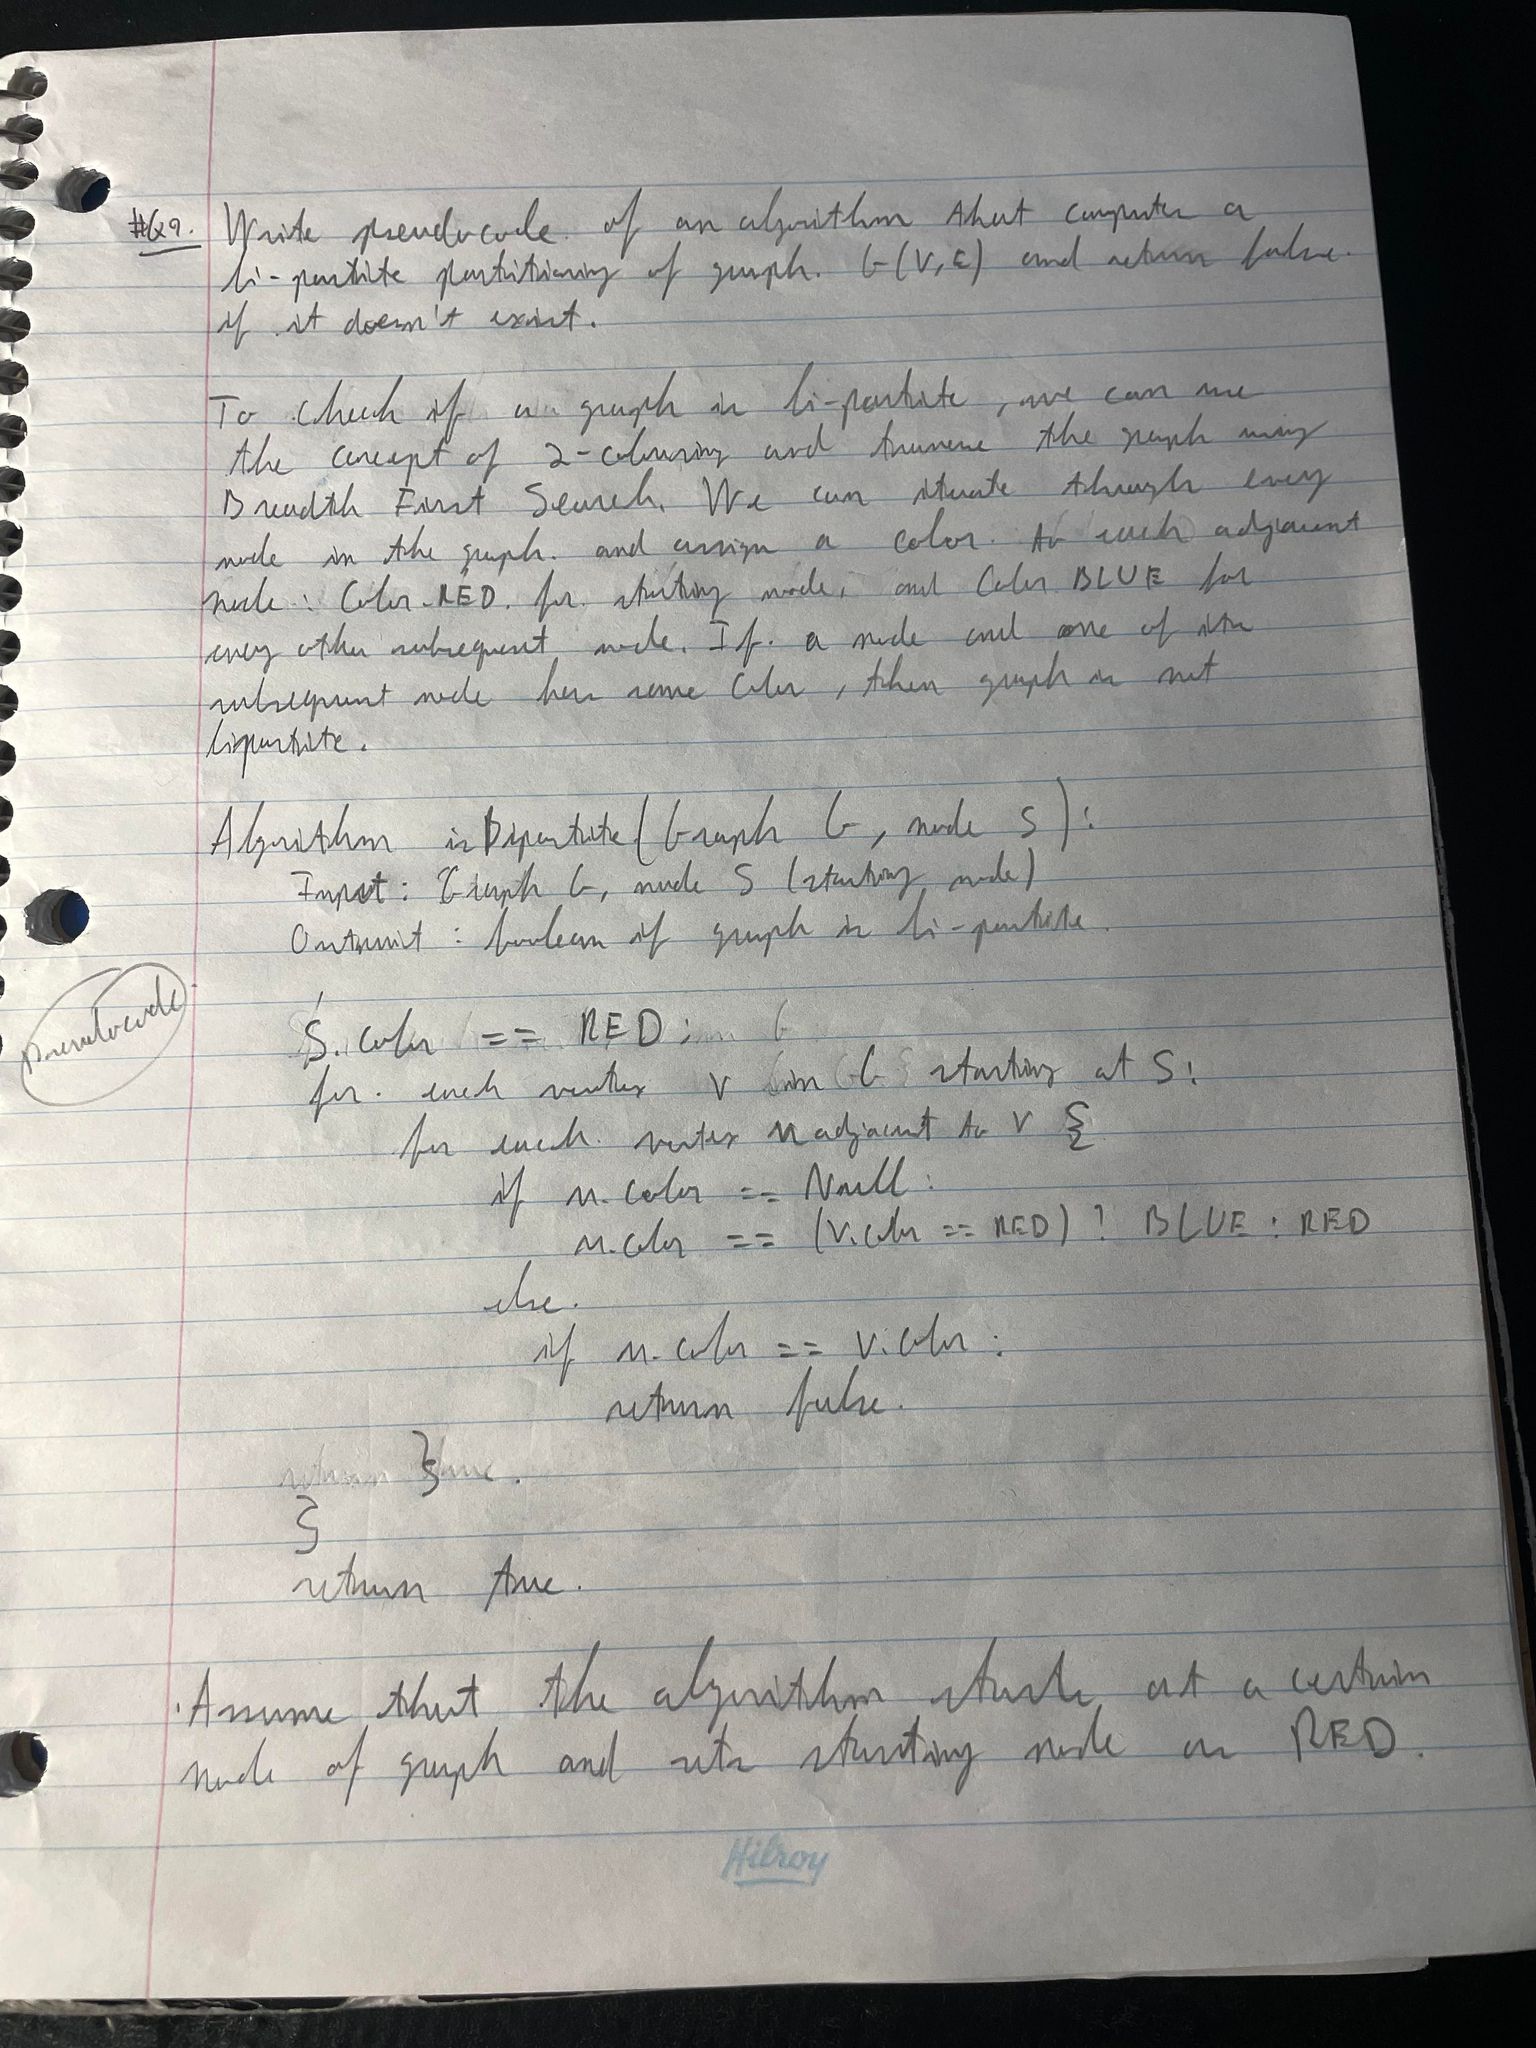 #Q9. Write pseudocode of an algorithm that computes a
bi-partite partitioning of graph. G(V,E) and return false.
if it doesn't exist.
To check if a graph is bi-partite, we can use
the concept of 2-colouring and traverse the graph using
Breadth First Search. We can iterate through every
node in the graph. and assign a color. to each adjacent
node: Color RED. for starting node, and Color BLUE for
every other subsequent node. If a node and one of its
subsequent node has same Color, then graph is not
bipartite.
Algorithm isBipartite(Graph G, node S):
Input: Graph G, node S (starting node)
Output: boolean if graph is bi-partite.
pseudocode
S.color == RED;
for each vertex v in G starting at S:
for each vertex n adjacent to v {
if n.color == Null:
n.color == (v.color == RED) ? BLUE : RED
else.
if n.color == v.color:
return false.
}
}
return true.
Assume that the algorithm starts at a certain
node of graph and sets starting node as RED.
Hilroy